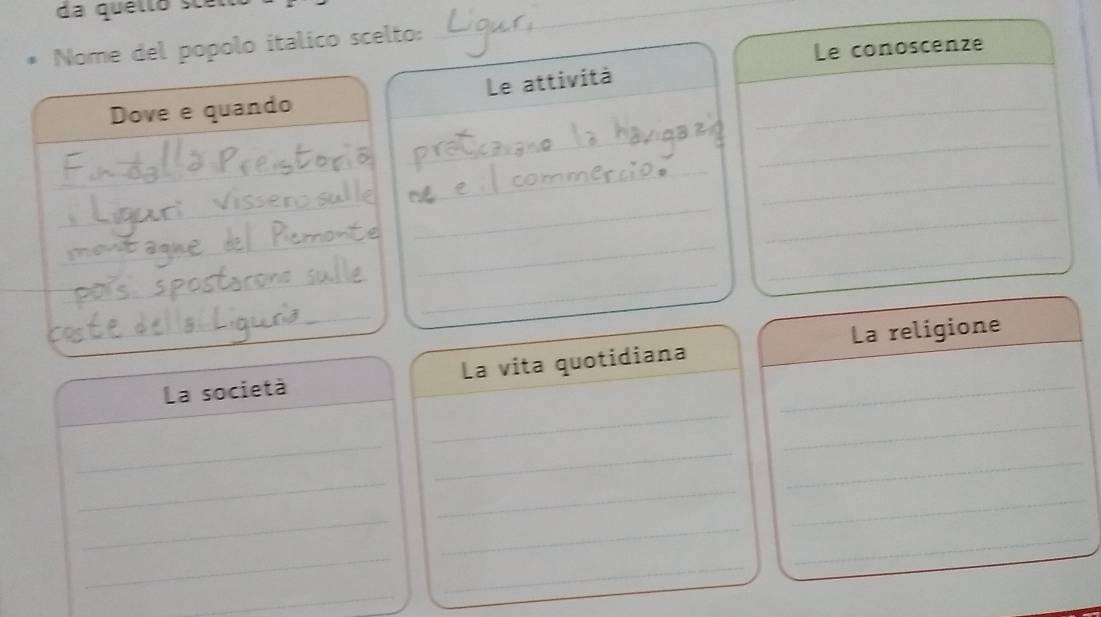 da quello
• Nome del popolo italico scelto: Liguri
Dove e quando
Fin dalla Preistoria
i Liguri vissero sulle
montagne del Piemonte
pois. spostarono sulle
coste della Liguria
Le attività
praticavano la navigazio
ne e il commercio.
Le conoscenze
La società
La vita quotidiana
La religione